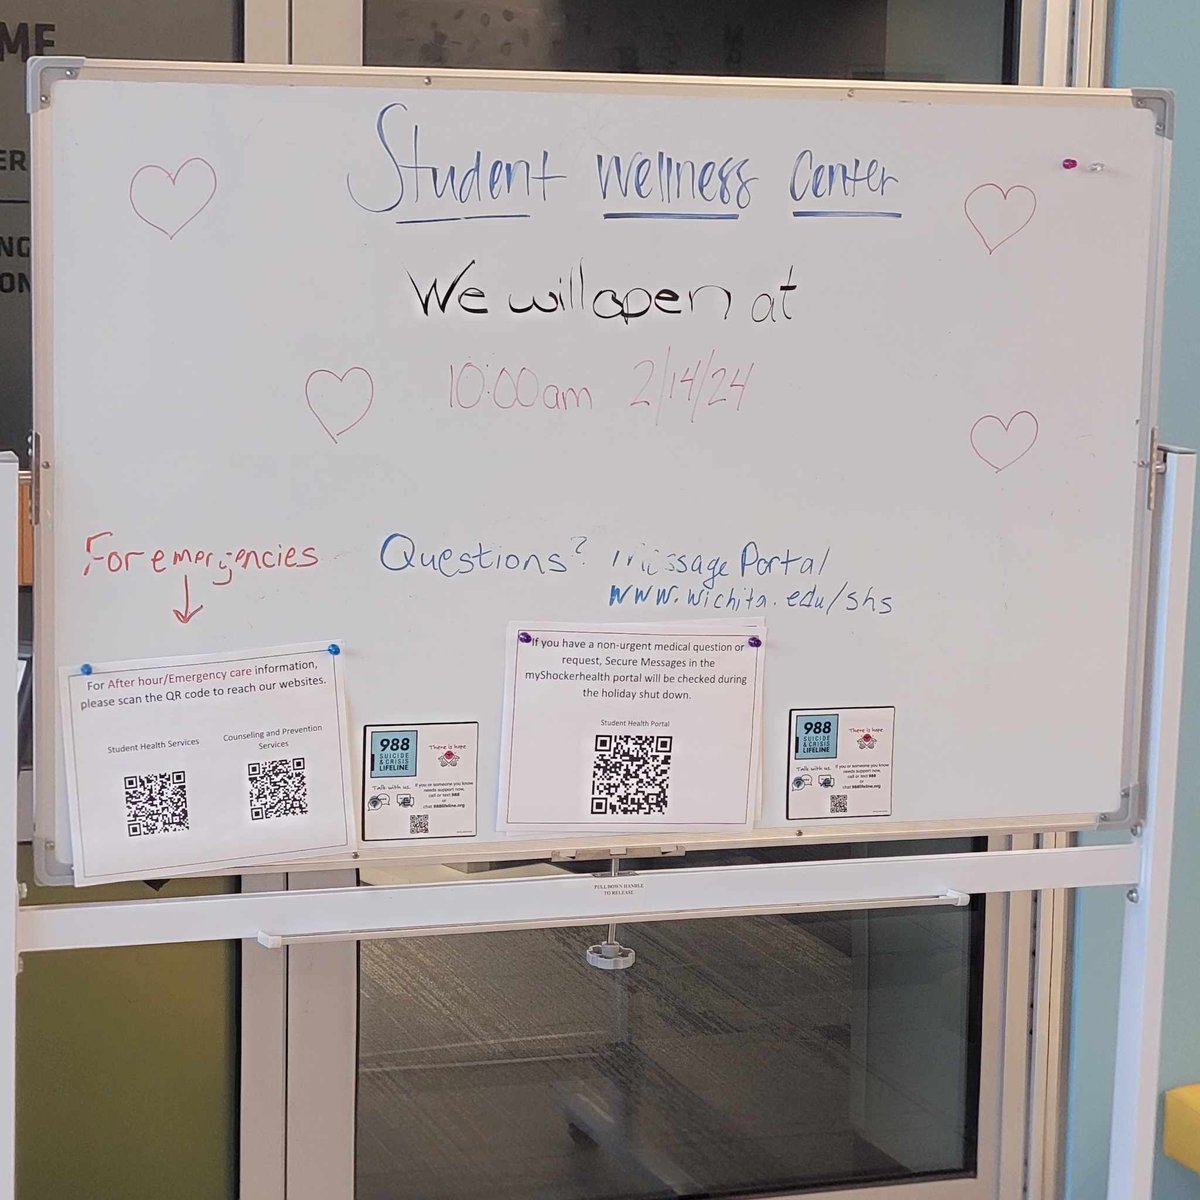 ME
ER
NG
ON
Student Wellness Center
We will open at
10:00am 2/14/24
For emergencies
Questions? Message Portal
www.wichita.edu/shs
For After hour/Emergency care information,
please scan the QR code to reach our websites.
Student Health Services
Counseling and Prevention
Services
988
SUICIDE
& CRISIS
LIFELINE
There is hope
Talk with us.
If you or someone you know
needs support now,
call or text 988
or
chat 988lifeline.org
If you have a non-urgent medical question or
request, Secure Messages in the
myShockerhealth portal will be checked during
the holiday shut down.
Student Health Portal
988
SUICIDE
& CRISIS
LIFELINE
There is hope
Talk with us.
If you or someone you know
needs support now,
call or text 988
or
chat 988lifeline.org
PULL DOWN HANDLE
TO RELEASE